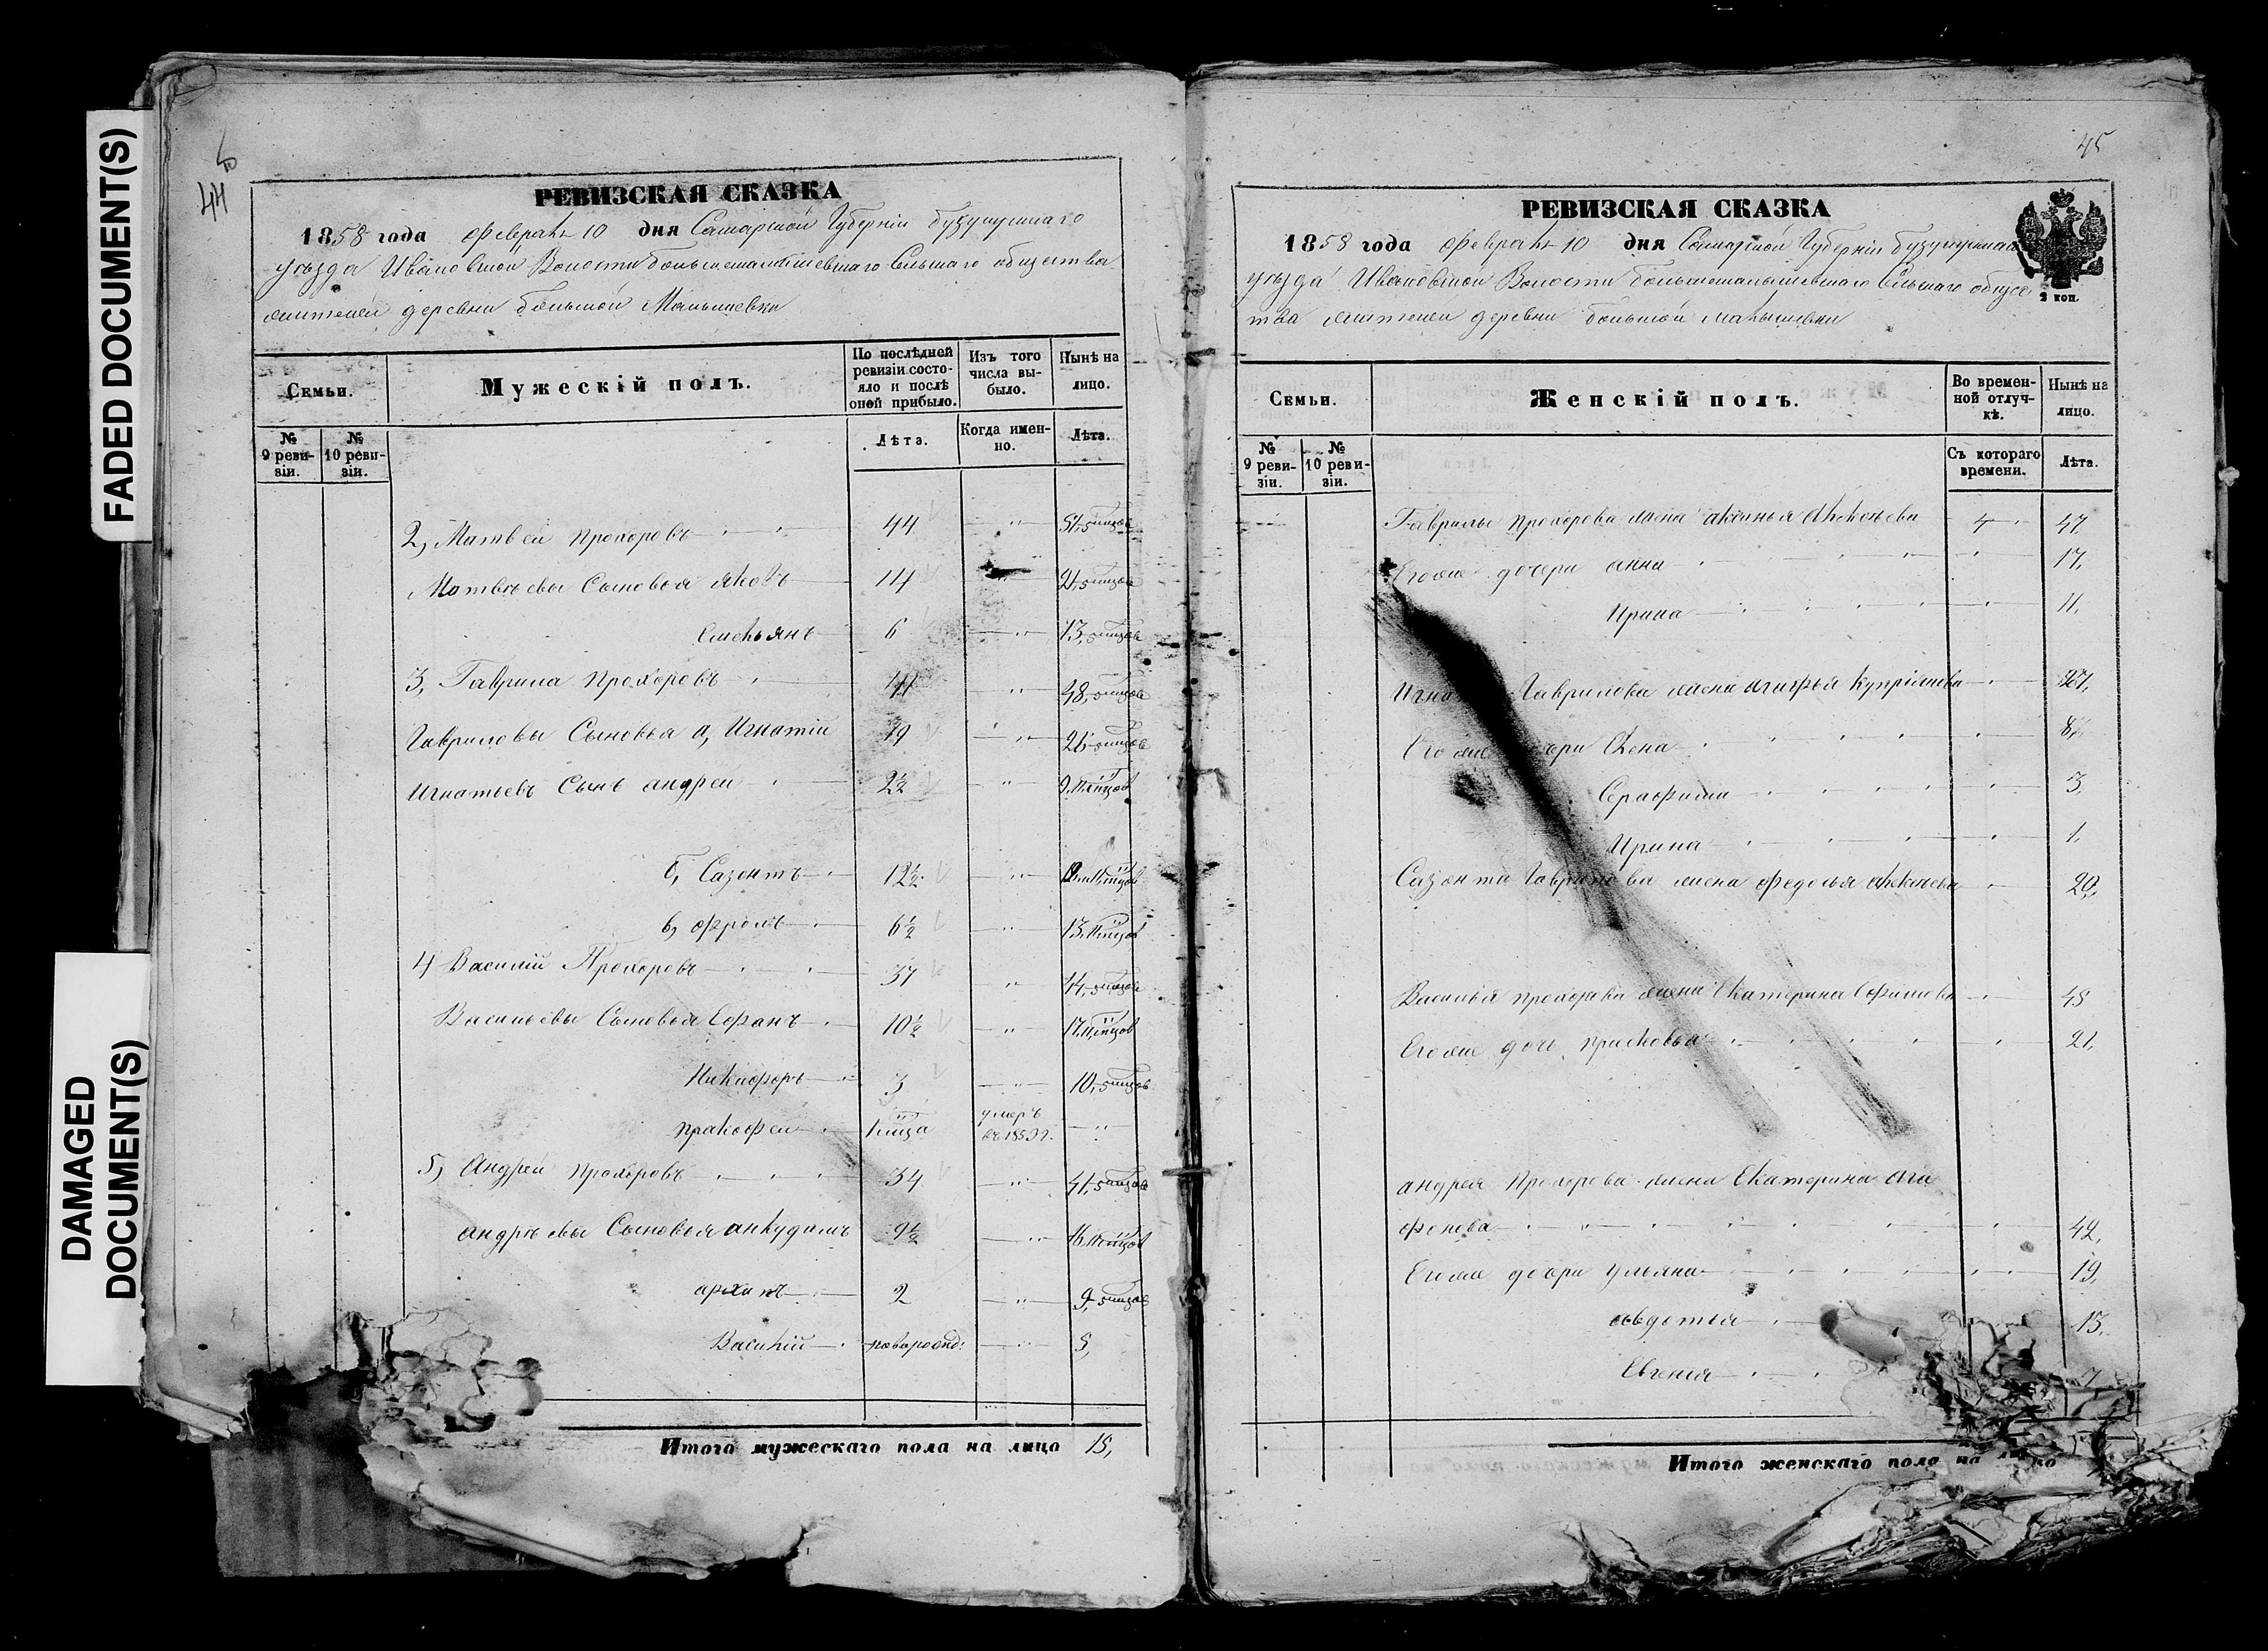 FADED DOCUMENT(S)
DAMAGED
DOCUMENT(S)
44
РЕВИЗСКАЯ СКАЗКА
1858 года февраля 10 дня Самарской Губернии бузулукскаго
уѣзда Ивановской Волости большемалышевскаго Сельскаго общества
жителей деревни большой Малышевки
Семьи.
Мужескій полъ.
По послѣдней ревизіи состояло и послѣ оной прибыло.
Изъ того числа выбыло.
Нынѣ на лицо.
№ 9 ревизіи.
№ 10 ревизіи.
Лѣта.
Когда именно.
Лѣта.
2, Матвей прохоровъ 44 " 51, 5 мѣсцов
Матвѣевы Сыновья яковъ 14 " 21, 5 мѣсцов
Емельянъ 6 " 13, 5 мѣсцов
3, Гаврила Прохоровъ 41 " 48, 5 мѣсцов
Гавриловы Сыновья а, Игнатій 19 " 26, 5 мѣсцов
Игнатьевъ Сынъ андрей 2½ " 9, 11 мѣсцов
б, Сазонтъ 12½ "
в, фролъ 6½ " 13, 11 мѣсцов
4, Василій Прохоровъ 37 " 44, 5 мѣсцов
Васильевы Сыновья Ефанъ 10½ " 17, 11 мѣсцов
Никифоръ 3 " 10, 5 мѣсцов
пракофей 1 мѣсца умеръ въ 1850 г. "
5, Андрей прохоровъ 34 " 41, 5 мѣсцов
андрѣевы Сыновья анкудимъ 9½ " 16, 11 мѣсцов
архипъ 2 " 9, 5 мѣсцов
Василій новорожд: " 5,
Итого мужескаго пола на лицо 15,
45
РЕВИЗСКАЯ СКАЗКА
2 коп.
1858 года февраля 10 дня Самарской Губерніи бузулукскаго
уѣзда Ивановской Волости большемалышевскаго Сельскаго общес
тва жителей деревни большой малышевки
Семьи.
Женскій полъ.
Во временной отлучкѣ.
Нынѣ на лицо.
№ 9 ревизіи.
№ 10 ревизіи.
Съ котораго времени.
Лѣта.
Гаврилы прохорова жена аксинья алексѣева 47,
Егоже дочери анна 17,
Ирина 11,
Гаврилова жена агафья купріянова 27,
Егоже Елена 8,
Серафима 3,
Ирина 1,
Сазонта Гаврилова жена федосья алексѣева 20,
Василья прохорова жена Екатерина Ефимова 45
Егоже дочь прасковья 21,
андрея Прохорова жена Екатерина ага
фонова 42,
Егоже дочери ульяна 19,
авдотья 13,
Евгенія 7
Итого женскаго пола на